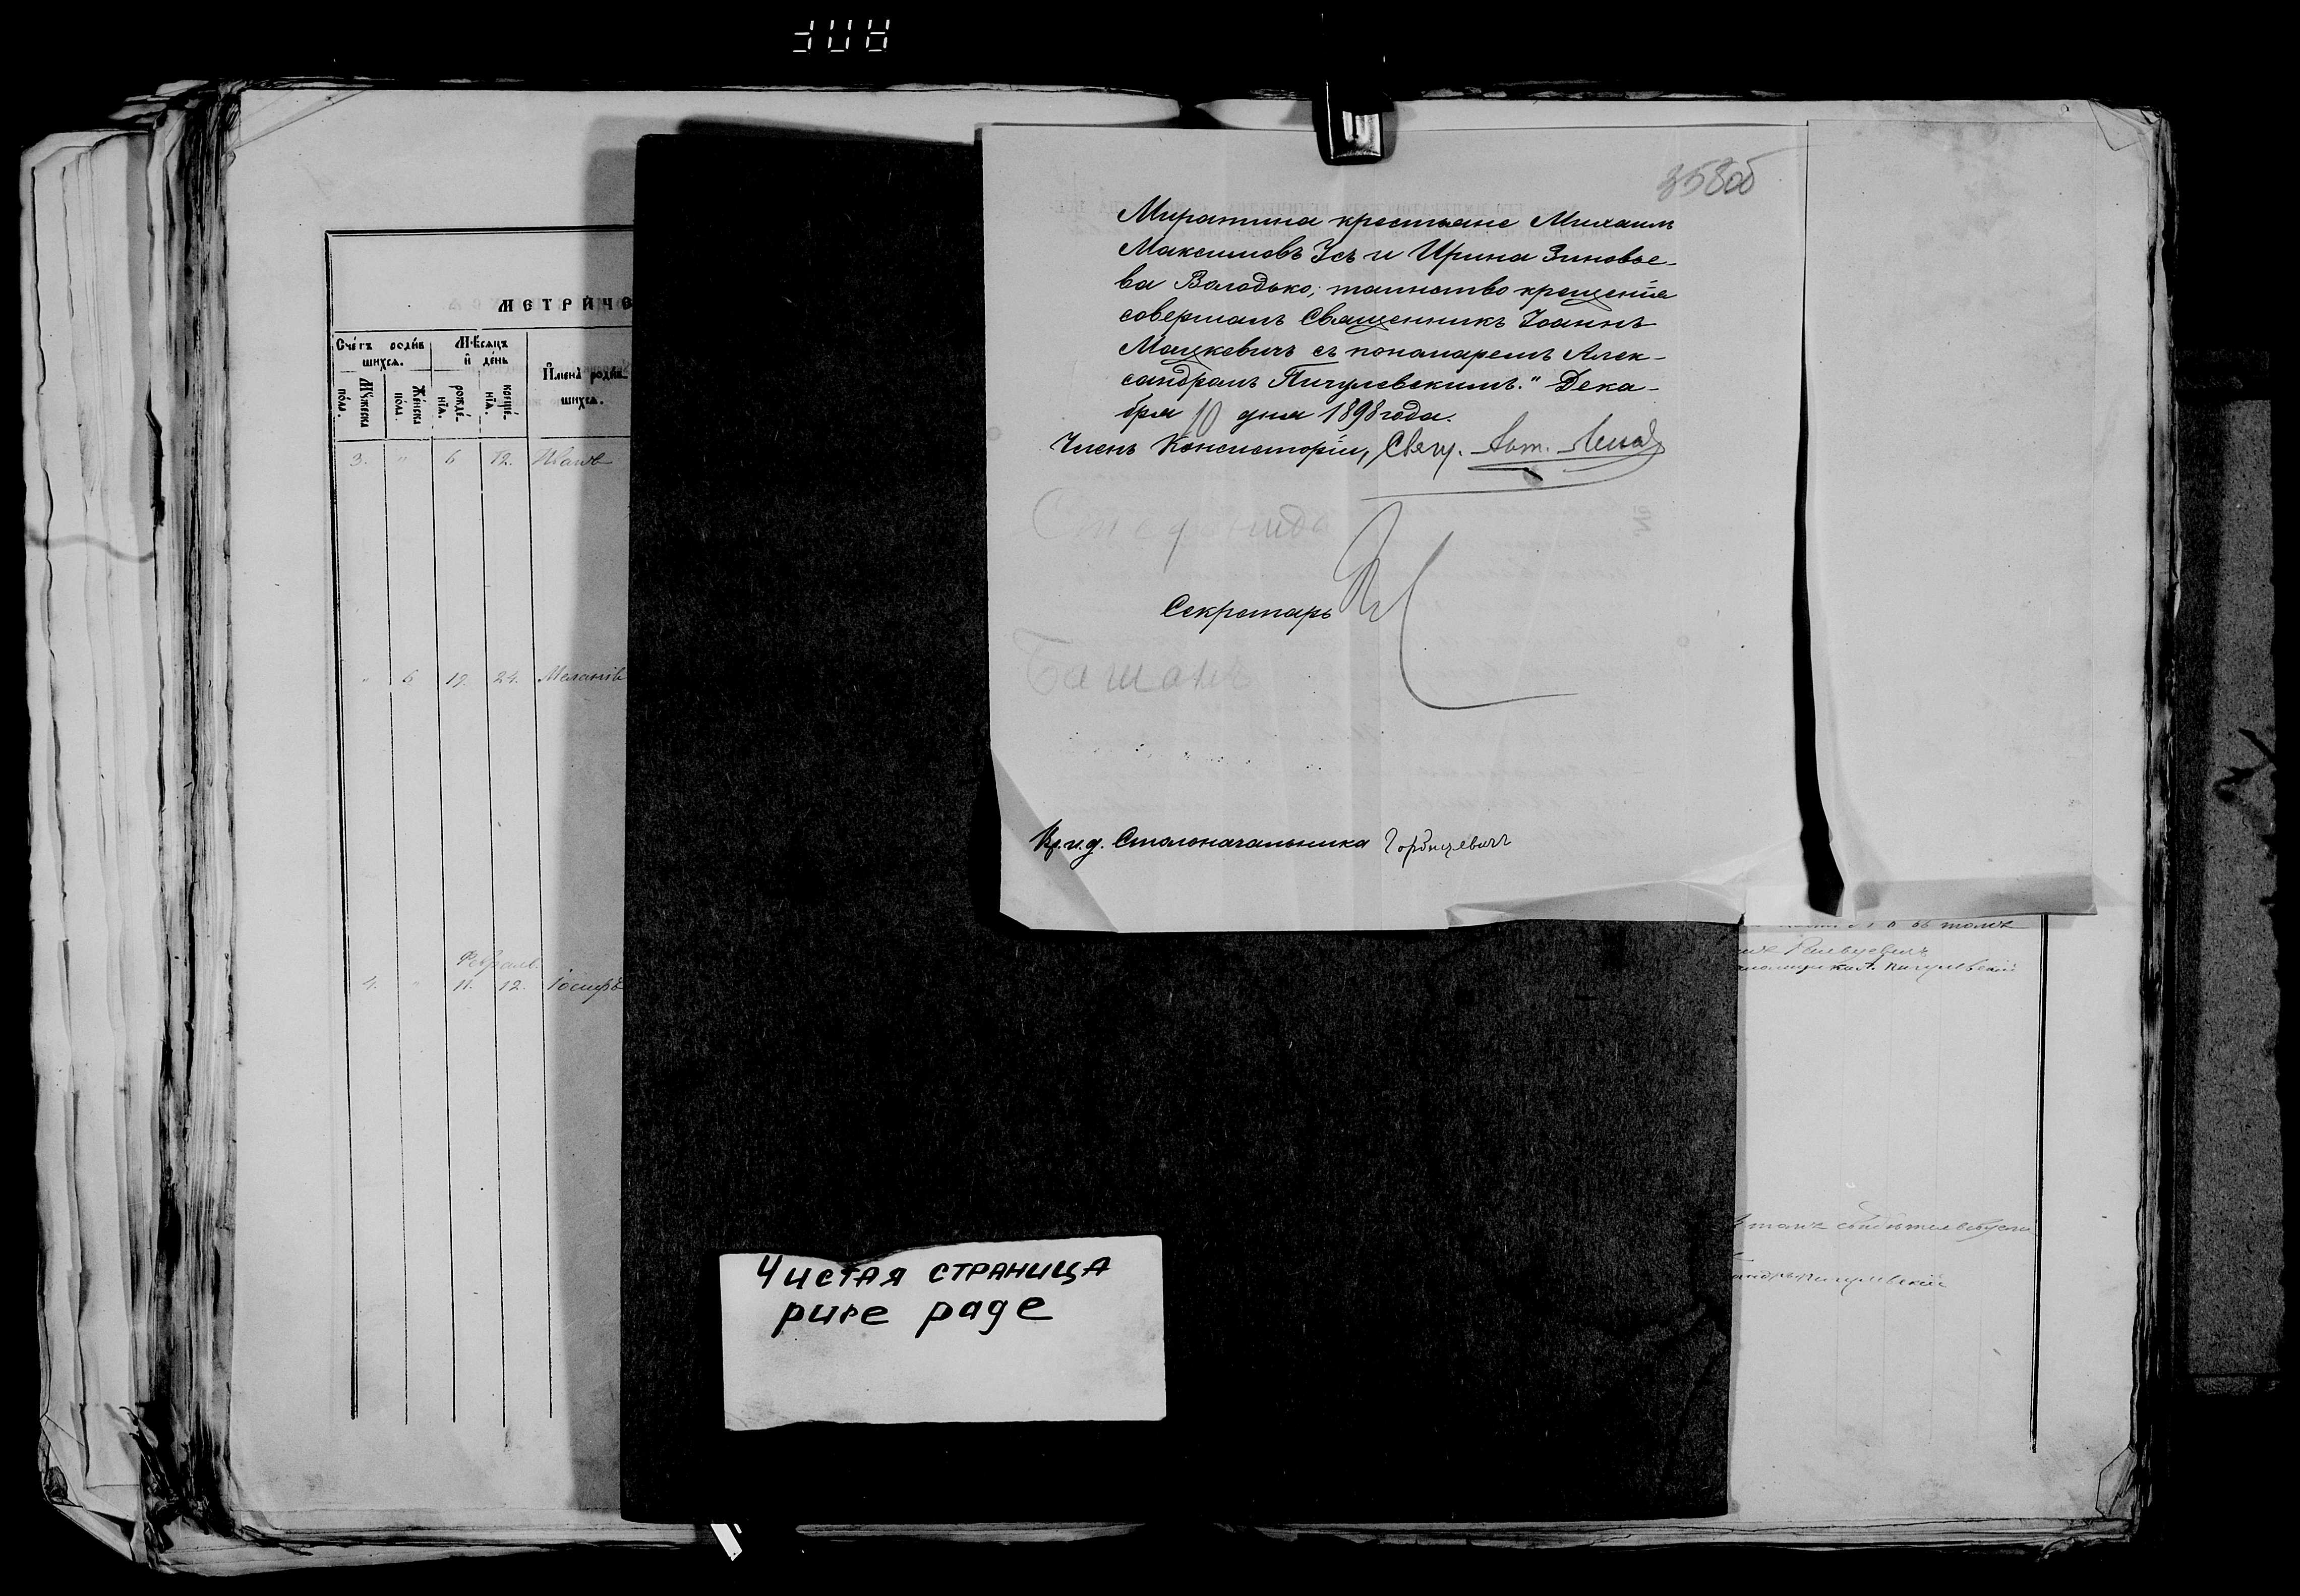 358об
Миратина крестьяне Михаилъ
Максимовъ Усъ и Ирина Зиновье-
ва Вагодько; таинство крещенія
совершалъ Священникъ Іоаннъ
Мацкевичъ съ пономаремъ Алек-
сандромъ Пигулевскимъ." Дека-
бря 10 дня 1898 года.
Членъ Консисторіи, Свящ. Ант.
Секретарь
И. д. Столоначальника
МЕТРИЧЕ
Счетъ родив
шихся.
Мѣсяцъ
и день
Имена родив
шихся.
Мужеска
пола.
Женска
пола.
рожде-
нія.
креще-
нія.
3. " 6 12. Иванъ
" 6 19. 24. Меланія
Февраль.
4. " 11. 12. Іосифъ
Пигулевскій
Чистая страница
pure page